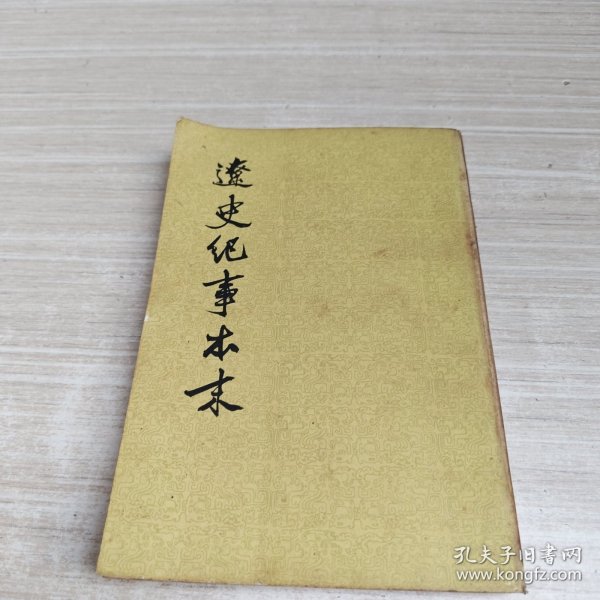 遼史纪事本末
孔夫子旧书网
www.kongfz.com